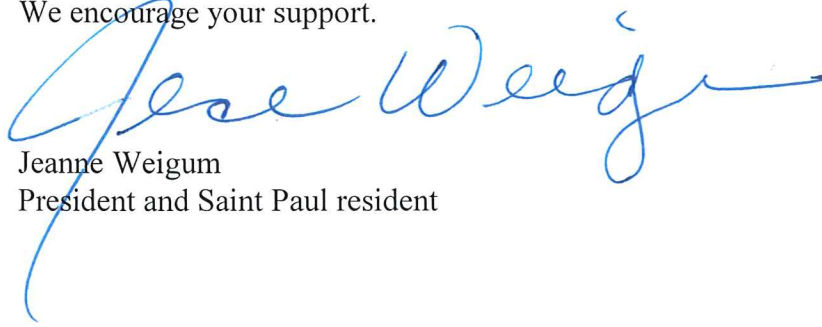 We encourage your support.
Jeanne Weigum
Jeanne Weigum
President and Saint Paul resident